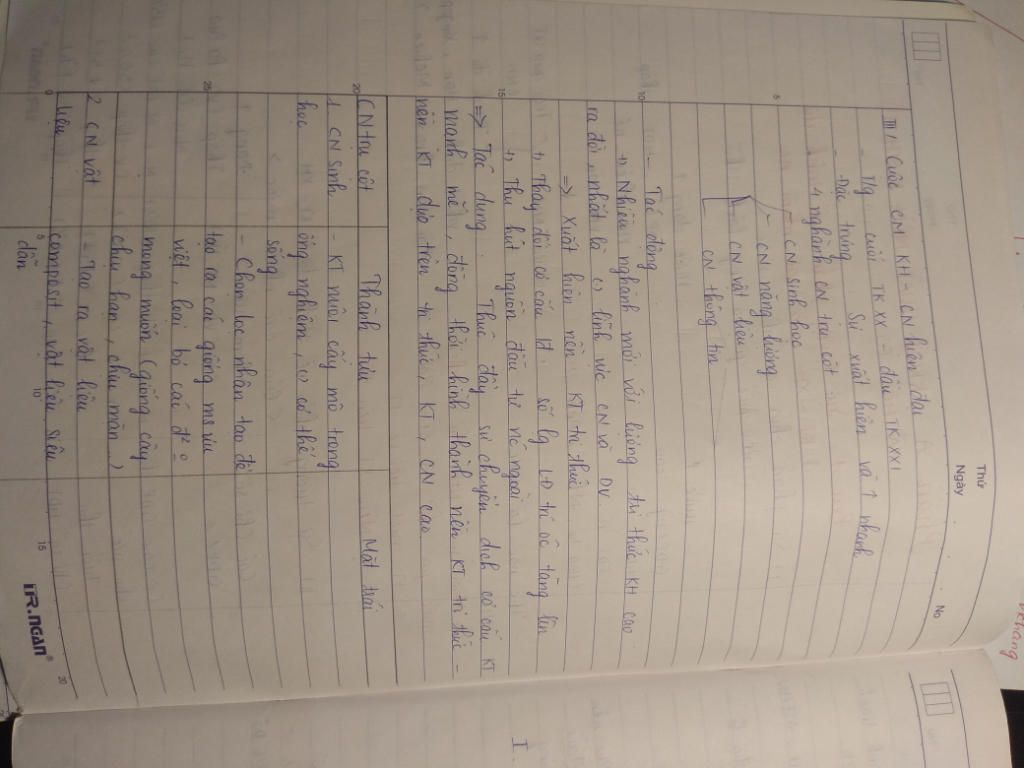 Thứ
Ngày
No
III/ Cuộc CM KH - CN hiện đại
- T/g cuối TK XX - đầu TK XXI
- Đặc trưng Sự xuất hiện và ↑ nhanh
4 nghành CN trụ cột
- CN sinh học
- CN năng lượng
CN vật liệu
CN thông tin
- Tác động
+, Nhiều nghành mới với lượng tri thức KH cao
ra đời, nhất là lĩnh vực CN và DV
=> Xuất hiện nền KT tri thức
+, Thay đổi cơ cấu lđ số lg LĐ trí óc tăng lên
+, Thu hút nguồn đầu tư nc ngoài
=> Tác dụng Thúc đẩy sự chuyển dịch cơ cấu KT
mạnh mẽ, đồng thời hình thành nên KT tri thức -
nền KT dựa trên tri thức, KT, CN cao
CN trụ cột Thành tựu Mặt trái
1 CN Sinh - KT nuôi cấy mô trong
học ống nghiệm, cơ thể
sống
- Chọn lọc nhân tạo để
tạo ra các giống ms ưu
việt, loại bỏ các đ² 0
mong muốn (giống cây
chịu hạn, chịu mặn)
2 CN vật - Tạo ra vật liệu
liệu composit, vật liệu siêu
dẫn
5
10
15
20
25
0
5
10
15
20
TR.NGAN®
I
vetrang